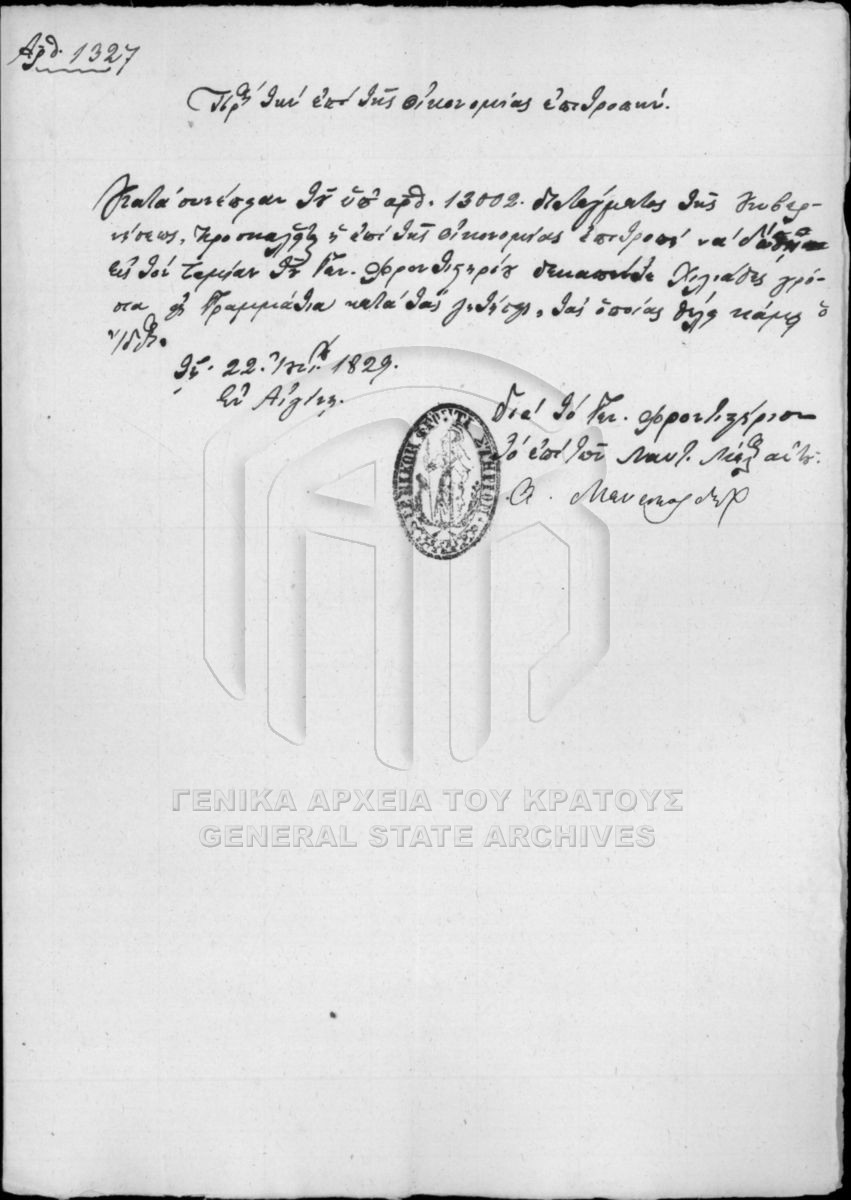 Ἀρθ. 1327
Πρὸς τὴν ἐπὶ τῆς Οἰκονομίας ἐπιτροπήν.
Κατὰ συνέπειαν τοῦ ὑπ' ἀρθ. 13002. διατάγματος τῆς Κυβερ-
νήσεως, προσκαλεῖται ἡ ἐπὶ τῆς Οἰκονομίας ἐπιτροπὴ νὰ
εἰς τὸν ταμίαν τοῦ Γεν. Φροντιστηρίου δεκαπέντε χιλιάδες γρό-
σια εἰς γραμμάτια κατὰ τὰς ζητήσεις, τὰς ὁποίας θέλει κάμει ὁ
ἴδιος.
τῇ 22. 1829.
Ἐν Αἰγίνῃ.
Διὰ τὸ Γεν. Φροντιστήριον
τὸ ἐπὶ τῶν Ναυτ. μέλος αὐτοῦ.
ΓΕΝΙΚΑ ΑΡΧΕΙΑ ΤΟΥ ΚΡΑΤΟΥΣ
GENERAL STATE ARCHIVES